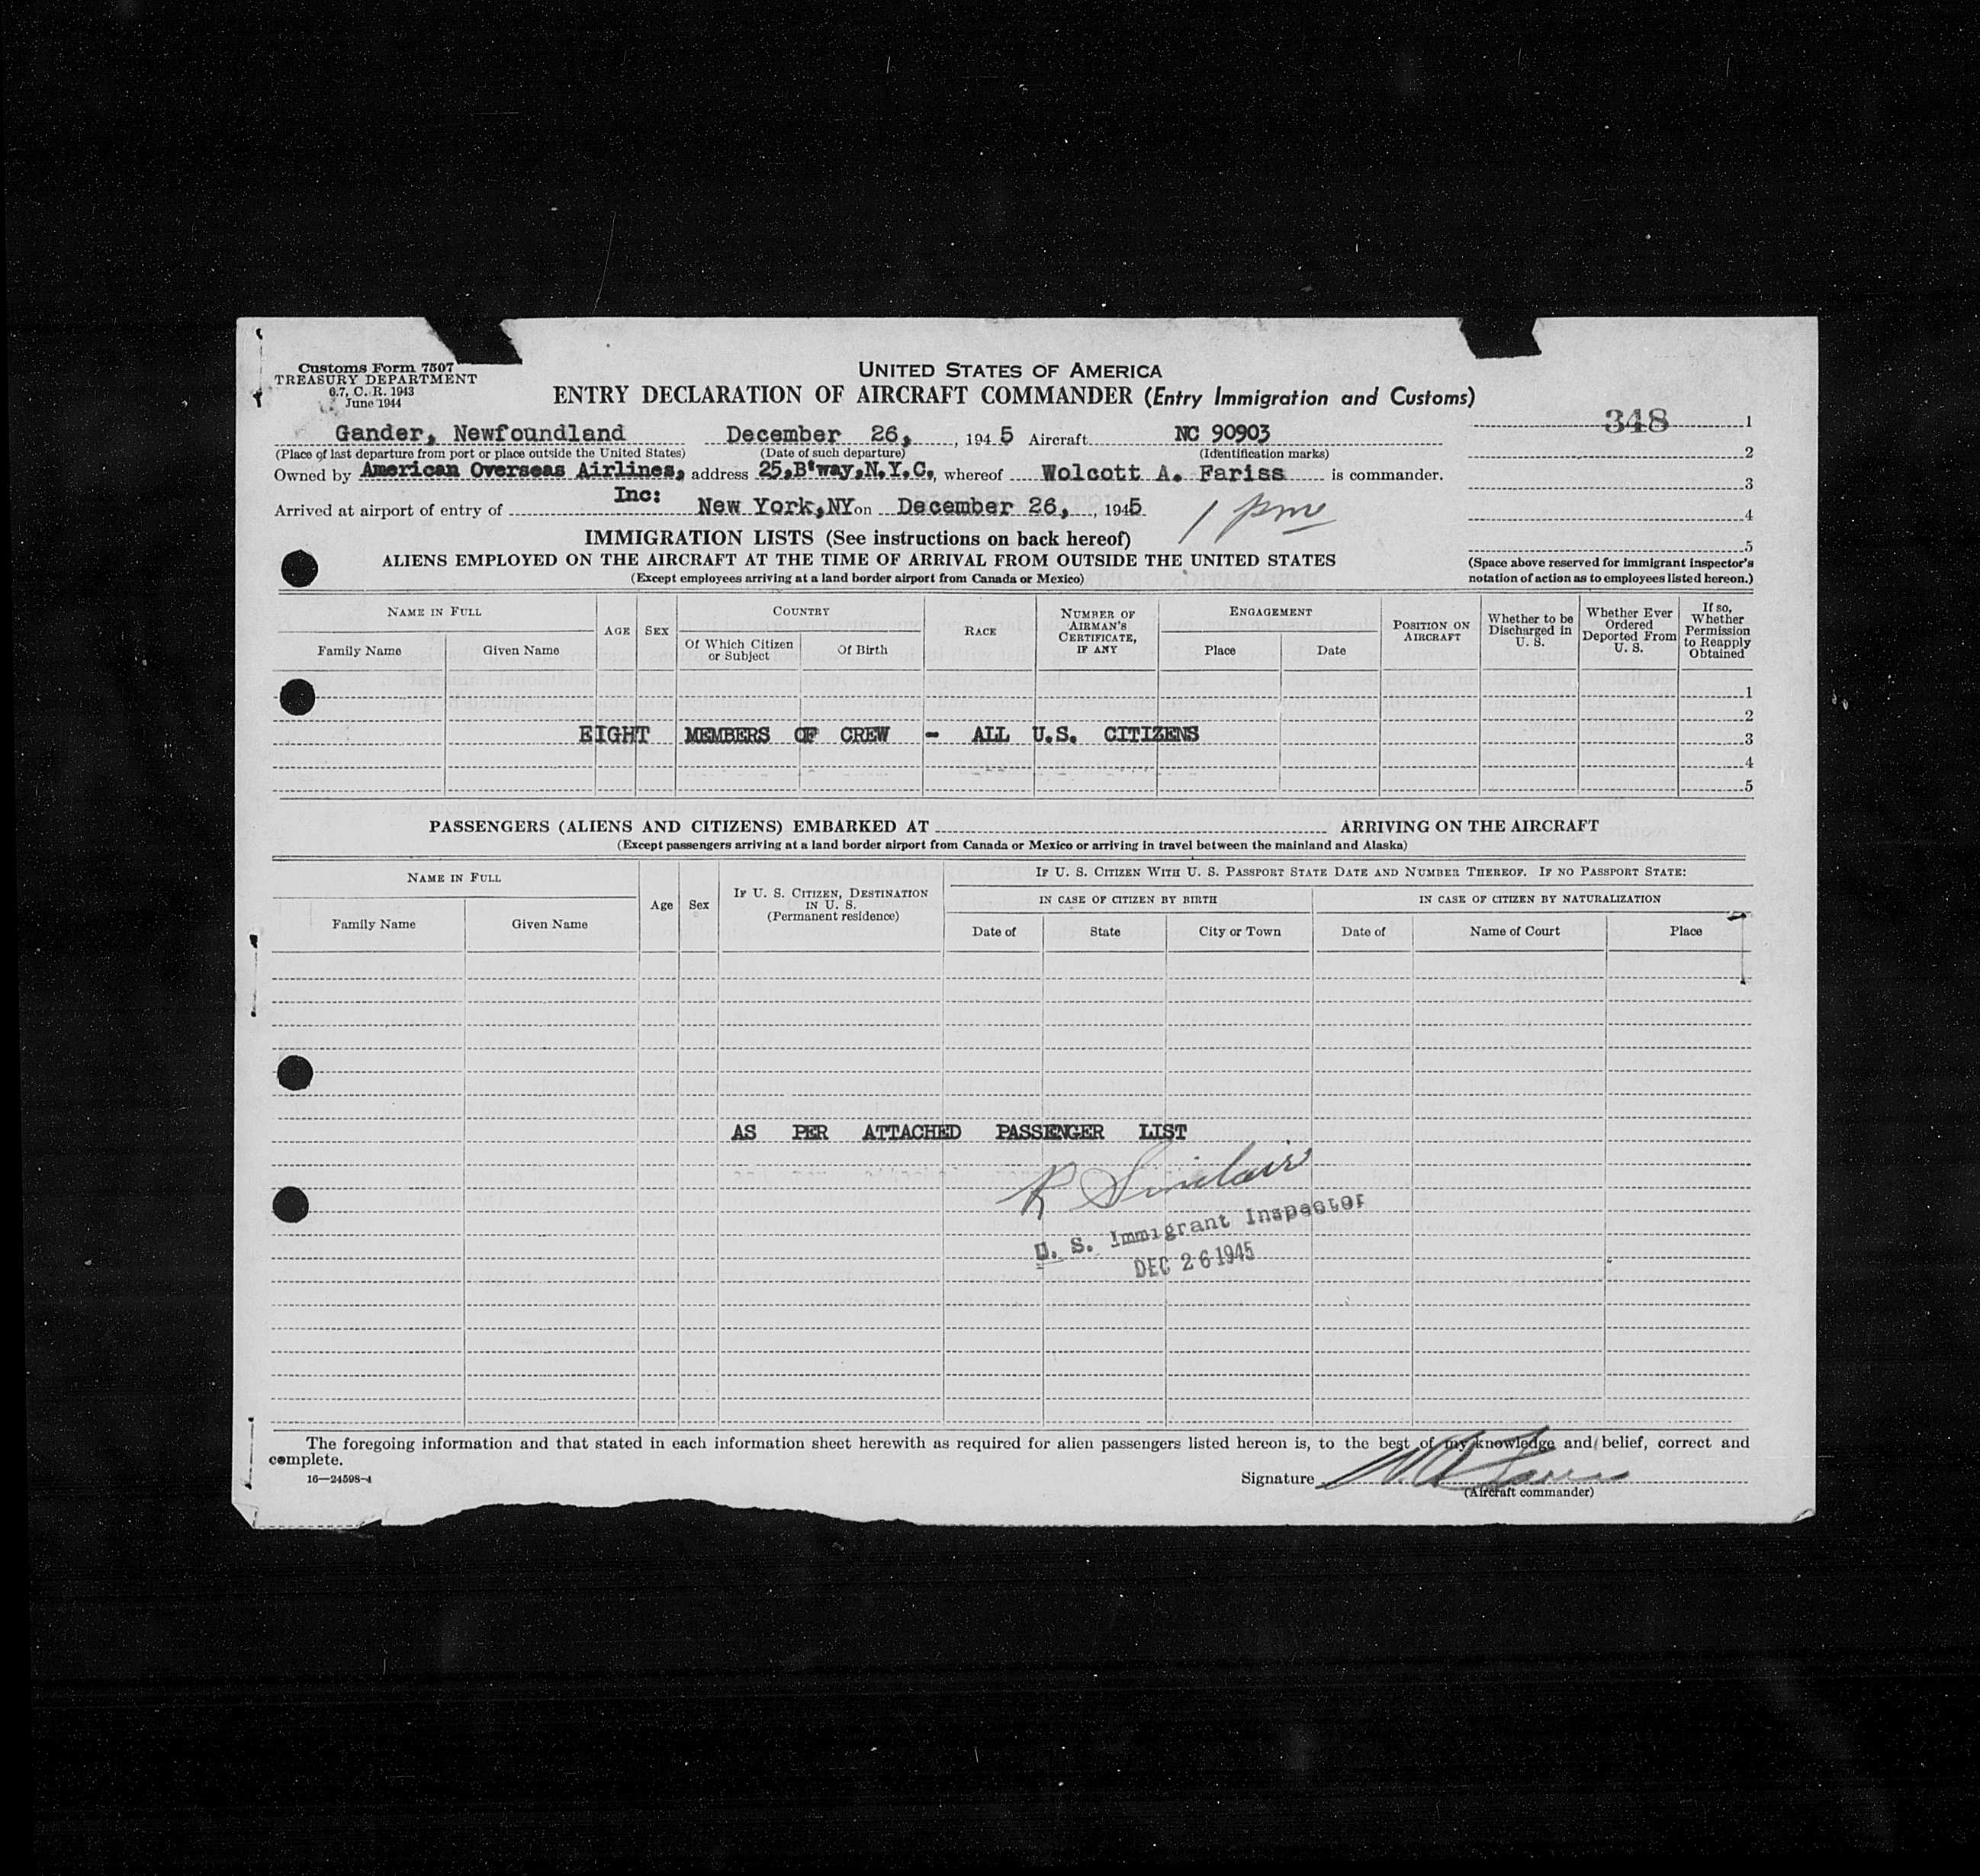 Customs Form 7507
TREASURY DEPARTMENT
6.7, C. R. 1943
June 1944
UNITED STATES OF AMERICA
ENTRY DECLARATION OF AIRCRAFT COMMANDER (Entry Immigration and Customs)
348 1
2
3
4
5
(Space above reserved for immigrant inspector's
notation of action as to employees listed hereon.)
Gander, Newfoundland December 26, , 194 5 Aircraft NC 90903
(Place of last departure from port or place outside the United States) (Date of such departure) (Identification marks)
Owned by American Overseas Airlines, address 25,B'way,N.Y.C., whereof Wolcott A. Fariss is commander.
Inc:
Arrived at airport of entry of New York,NY on December 26, , 1945 1 pm
IMMIGRATION LISTS (See instructions on back hereof)
ALIENS EMPLOYED ON THE AIRCRAFT AT THE TIME OF ARRIVAL FROM OUTSIDE THE UNITED STATES
(Except employees arriving at a land border airport from Canada or Mexico)
NAME IN FULL
Family Name Given Name
AGE SEX
COUNTRY
Of Which Citizen or Subject Of Birth
RACE
NUMBER OF AIRMAN'S CERTIFICATE, IF ANY
ENGAGEMENT
Place Date
POSITION ON AIRCRAFT
Whether to be Discharged in U. S.
Whether Ever Ordered Deported From U. S.
If so, Whether Permission to Reapply Obtained
1
2
EIGHT MEMBERS OF CREW - ALL U.S. CITIZENS 3
4
5
PASSENGERS (ALIENS AND CITIZENS) EMBARKED AT ARRIVING ON THE AIRCRAFT
(Except passengers arriving at a land border airport from Canada or Mexico or arriving in travel between the mainland and Alaska)
NAME IN FULL
Family Name Given Name
Age Sex
IF U. S. CITIZEN, DESTINATION IN U. S.
(Permanent residence)
IF U. S. CITIZEN WITH U. S. PASSPORT STATE DATE AND NUMBER THEREOF. IF NO PASSPORT STATE:
IN CASE OF CITIZEN BY BIRTH IN CASE OF CITIZEN BY NATURALIZATION
Date of State City or Town Date of Name of Court Place
AS PER ATTACHED PASSENGER LIST
R Sinclair
U. S. Immigrant Inspector
DEC 26 1945
The foregoing information and that stated in each information sheet herewith as required for alien passengers listed hereon is, to the best of my knowledge and belief, correct and
complete.
16—24598-4
Signature W. A. Fariss
(Aircraft commander)